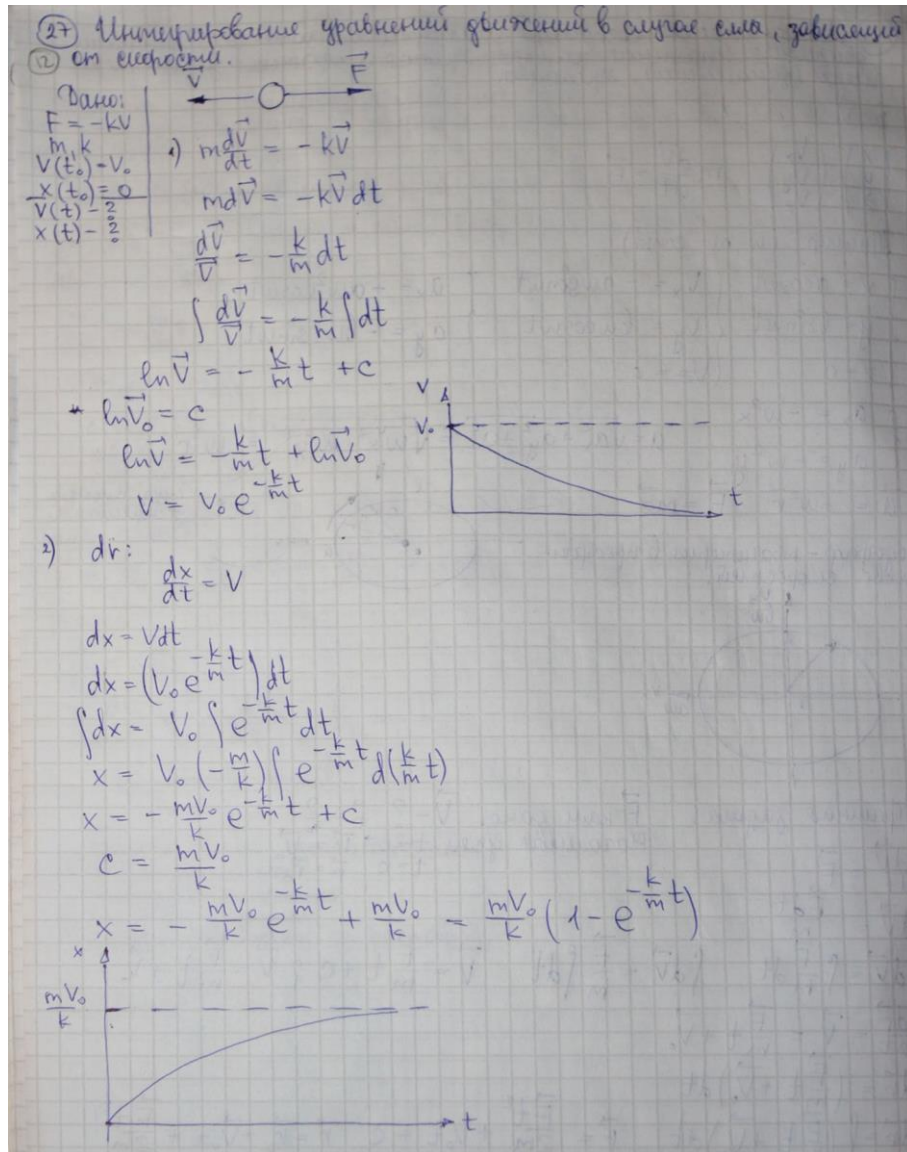 27 Интегрирование уравнений движений в случае силы, зависящей
12 от скорости.
V⃗ F⃗
Дано:
F = -kV
m, k
V(t₀) - V₀
x(t₀) = 0
V(t) - ?
x(t) - ?
1) m dV⃗/dt = - kV⃗
mdV⃗ = -kV⃗dt
dV⃗/V⃗ = - k/m dt
∫ dV⃗/V⃗ = - k/m ∫dt
lnV⃗ = - k/m t + c
lnV⃗₀ = c
lnV⃗ = - k/m t + lnV⃗₀
V = V₀ e^(-k/m t)
V
V₀
t
2) dr:
dx/dt = V
dx = Vdt
dx = (V₀ e^(-k/m t)) dt
∫dx = V₀ ∫ e^(-k/m t) dt
x = V₀ (- m/k) ∫ e^(-k/m t) d(k/m t)
x = - mV₀/k e^(-k/m t) + c
c = mV₀/k
x = - mV₀/k e^(-k/m t) + mV₀/k = mV₀/k (1 - e^(-k/m t))
x
mV₀/k
t